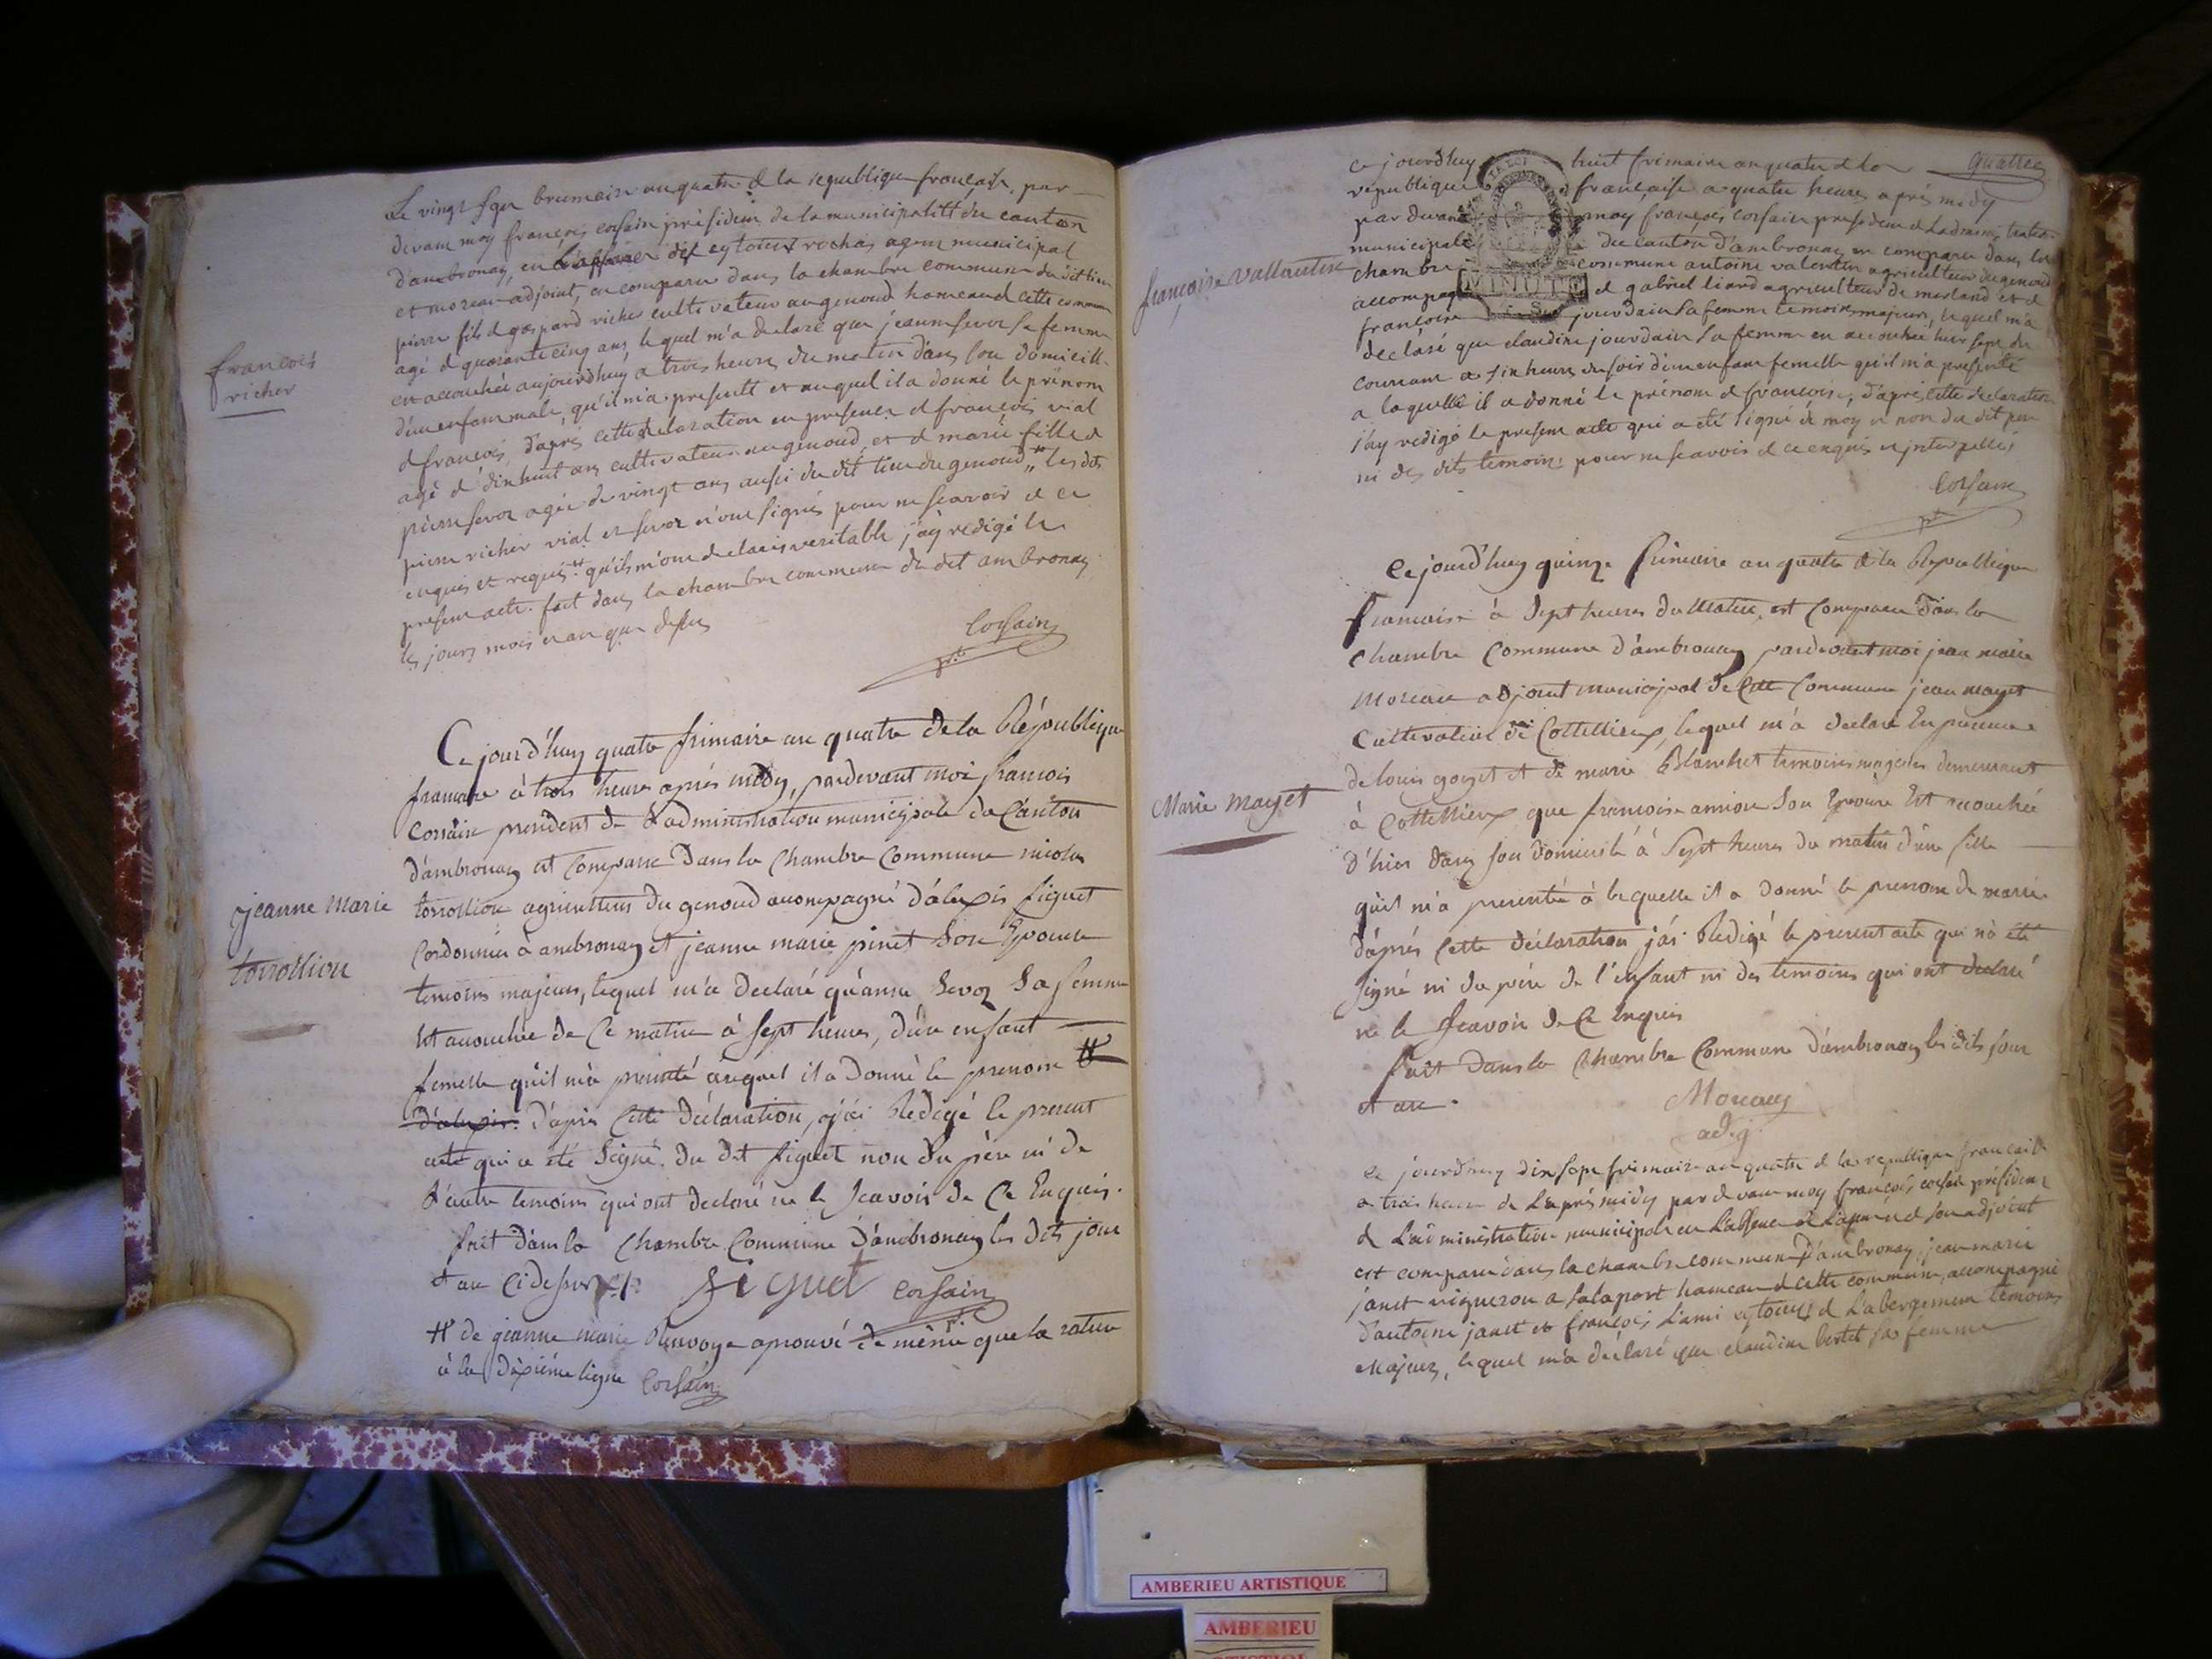 Le vingt sept brumaire an quatre de la republique française, par
devant moy françois corsain président de la municipalité du canton
d'ambronay, en L'absence des cytoiens rochas agent municipal
et moreau adjoint, en comparu dans la chambre commune du dit lieu
pierre fils de gaspard richer cultivateur au genoud hameau de cette commune
agé de quarante cinq ans, lequel m'a declaré que jeanne sevoz sa femme
en accouchée aujourdhuy a trois heures du matin dans son domicille
d'un enfan male, qu'il m'a presenté et auquel il a donné le prénom
de françois, d'aprés cette declaration en presence de françois vial
agé de dix huit ans cultivateur au genoud, et de marie fille de
pierre sevoz agée de vingt ans aussi du dit lieu du genoud, les dits
pierre richer vial et sevoz n'ont signés pour ne scavoir de ce
enquis et requis qu'ils m'ont declarés veritable j'ay redigé le
presen acte. fait dans la chambre commune du dit ambronay
les jours mois et an que dessus
Corsain
pt
françois
richer
Ce jourd'huy quatre frimaire an quatre de la République
francaise à trois heures aprés midy, pardevant moi francois
Corsain president de L'administration municipale du Canton
d'ambronay est Comparu Dans la Chambre Commune nicolas
torrollion agriculteur du genoud acompagné d'alexis figuet
Cordonnier à ambronay et jeanne marie pinet Son Epouse
temoins majeurs, lequel m'a declaré qu'anne Sevoz Sa femme
Est acouchée de Ce matin à sept heures, d'un enfant
femelle qu'il m'a presenté auquel il a Donné le prenom #
d'alexis. d'aprés Cette déclaration, j'ai Redigé le present
acte qui a été Signé. du dit figuet non du père ni de
L'autre temoins qui ont declaré ne le Scavoir de Ce Enquis.
fait dans la Chambre Commune d'ambronay les dits jour
& an Ci dessus
figuet Corsain
# de jeanne marie Renvoye aprouvé de même que la rature
à la dixiéme ligne Corsain
jeanne Marie
torrollion
quatre
ce jourdhuy huit frimaire an quatre de la
republique française a quatre heures aprés midy
par devant moy françois corsain president de L'adminstration
municipale du canton d'ambronay en comparu dans la
chambre commune antoine valentin agriculteur du genoud
accompagné de gabriel liard agriculteur de merland et de
françoise jourdain sa femme temoins majeurs, lequel m'a
declaré que claudine jourdain sa femme en accouchée hier sept du
courrant a six heures du soir d'un enfant femelle qu'il m'a presenté
a laquelle il a donné le prénom de françoise, d'aprés cette declaration
j'ay redigé le present acte qui a eté signé de moy et non du dit pere
ni des dits temoins pour ne scavoir de ce enquis et interpellés
Corsain
pt
françoise Vallantin
Ce jourd'huy quinze frimaire an quatre de la République
francaise à Sept heures du Matin, est Comparu dans la
Chambre Commune d'ambronay pardevant moi jean marie
Moreau adjoint municipal de Cette Commune jean mayet
Cultivateur de Cottellieux, lequel m'a declaré En presence
de louis goyet et de marie Blanchet temoins majeurs demeurant
à Cottellieux que francoise amiou Son Epouse Est acouchée
d'hier dans son domicile à Sept heures du matin d'une fille
qu'il m'a presentée à laquelle il a donné le prenom de marie
d'aprés Cette déclaration j'ai Redigé le present acte qui n'a été
signé ni du père de l'enfant ni des temoins qui ont declaré
ne le Scavoir de Ce Enquis
fait Dans la Chambre Commune d'ambronay les dits jour
et an.
Moreau
adj.
Marie mayet
ce jourdhuy dix sept frimaire an quatre de la republique française
a trois heures de L'aprés midy par devant moy françois corsain président
de L'administration municipale en L'absence de L'agent et de son adjoint
est comparu dans la chambre commune d'ambronay, jean marie
janet vigneron a salaport hameau de cette commune, accompagné
d'antoine janet et françois Lami cytoiens de L'abergement temoins
majeurs, lequel m'a déclaré que claudine bertet sa femme
LA LOI
MINUTE
AMBERIEU ARTISTIQUE
AMBERIEU
ARTISTIQUE